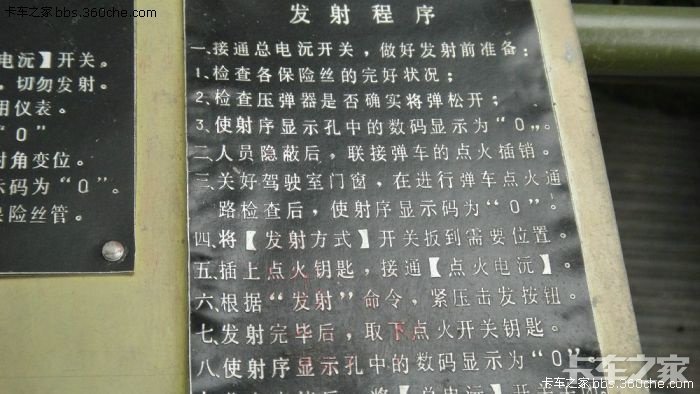 卡车之家 bbs.360che.com
电沅】开关。
，切勿发射。
用仪表。
“0”
射角变位。
示码为“0”。
保险丝管。
发射程序
一、接通总电沅开关，做好发射前准备；
1、检查各保险丝的完好状况；
2、检查压弹器是否确实将弹松开；
3、使射序显示孔中的数码显示为“0”。
二、人员隐蔽后，联接弹车的点火插销。
三、关好驾驶室门窗，在进行弹车点火通
路检查后，使射序显示码为“0”。
四、将【发射方式】开关扳到需要位置。
五、插上点火钥匙，接通【点火电沅】。
六、根据“发射”命令，紧压击发按钮。
七、发射完毕后，取下点火开关钥匙。
八、使射序显示孔中的数码显示为“0”。
卡车之家
卡车之家 bbs.360che.com